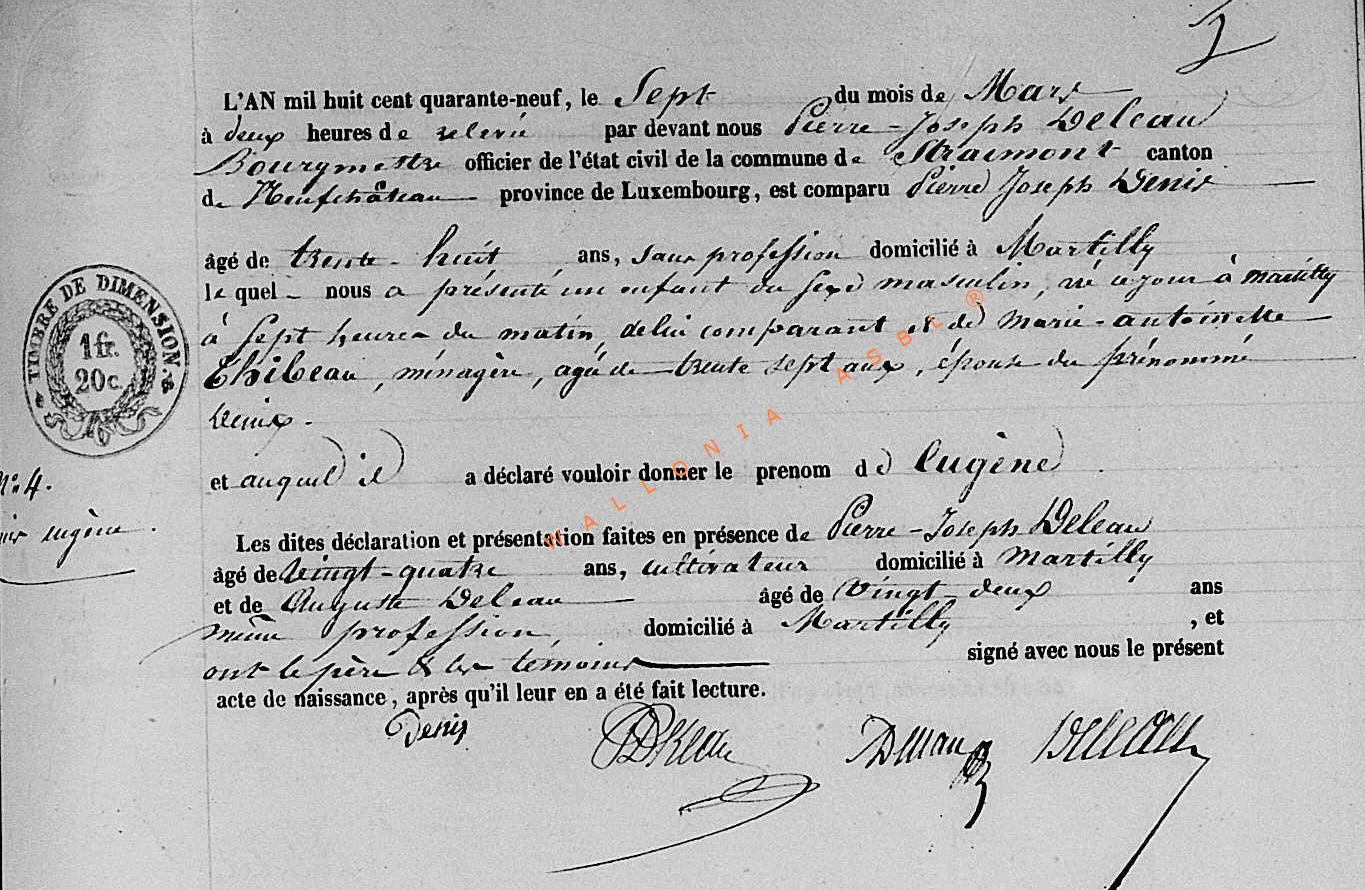 L'AN mil huit cent quarante-neuf, le Sept du mois de Mars
à deux heures de relevée par devant nous Pierre-Joseph Deleau
Bourgmestre officier de l'état civil de la commune de Straimont canton
de Neufchâteau province de Luxembourg, est comparu Pierre Joseph Denis
âgé de trente-huit ans, sans profession domicilié à Martilly
le quel nous a présenté un enfant du sexe masculin, né ce jour à martilly
à sept heures du matin, de lui comparant et de marie-antoinette
Thibeau, ménagère, agée de trente sept ans, épouse du prénommé
Denis.
et auquel il a déclaré vouloir donner le prenom de Eugène.
Les dites déclaration et présentation faites en présence de Pierre-Joseph Deleau
âgé de vingt-quatre ans, cultivateur domicilié à martilly
et de Auguste Deleau âgé de vingt-deux ans
même profession, domicilié à Martilly, et
ont le père & les témoins signé avec nous le présent
acte de naissance, après qu'il leur en a été fait lecture.
Denis PDeleau Deleau
TIMBRE DE DIMENSION.
1 fr.
20 c.
No. 4.
eugène.
WALLONIA ASBL ®